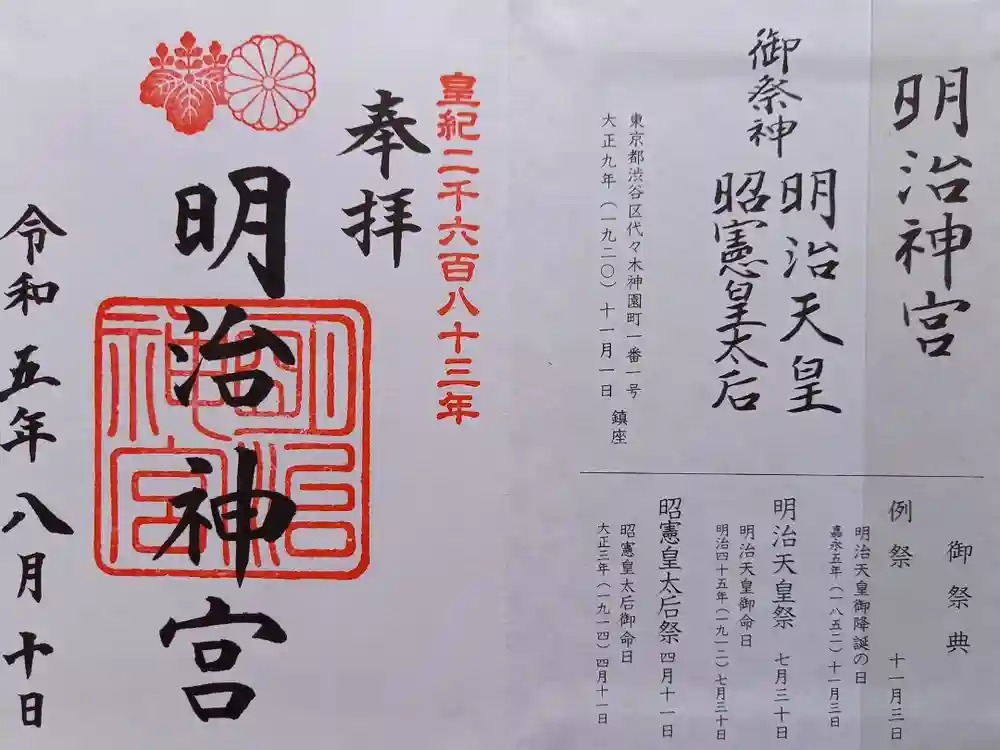 明治神宮
御祭神
明治天皇
昭憲皇太后
東京都渋谷区代々木神園町一番一号
大正九年(一九二〇)十一月一日 鎮座
御祭典
例祭 十一月三日
明治天皇御降誕の日
嘉永五年(一八五二)十一月三日
明治天皇祭 七月三十日
明治天皇御命日
明治四十五年(一九一二)七月三十日
昭憲皇太后祭 四月十一日
昭憲皇太后御命日
大正三年(一九一四)四月十一日
皇紀二千六百八十三年
奉拝
明治神宮
明治
神宮
令和五年八月十日